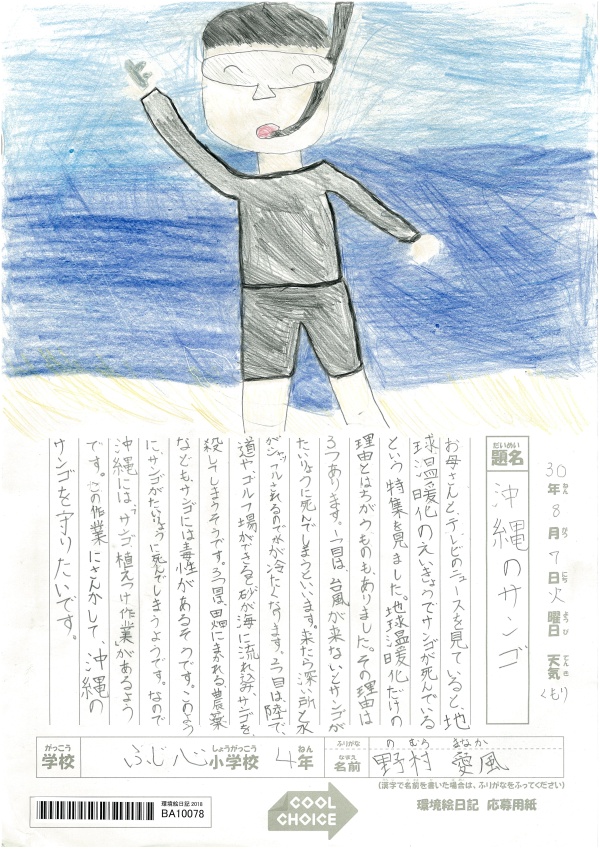 30年8月7日火曜日 天気くもり
ねん がつ にち ようび てんき
だいめい
題名 沖縄のサンゴ
お母さんと、テレビのニュースを見ていると、地
球温暖化のえいきょうでサンゴが死んでいる
という特集を見ました。地球温暖化だけの
理由とはちがうものもありました。その理由は
3つあります。1つ目は、台風が来ないとサンゴが
たいりょうに死んでしまうといいます。来たら深い所と水
がシャッフルされるので水が冷たくなります。2つ目は、陸で、
道や、ゴルフ場ができると砂が海に流れ込み、サンゴを
殺してしまうそうです。3つ目は、田畑にまかれる農薬
などもサンゴには毒性があるそうです。このよう
に、サンゴがたいりょうに死んでしまうようです。なので
沖縄には、「サンゴ植えつけ作業」があるよう
です。この作業にさんかして、沖縄の
サンゴを守りたいです。
がっこう しょうがっこう ねん ふりがな のむら まなか
学校 ふじ心小学校 4年 なまえ 名前 野村 愛風
(漢字で名前を書いた場合は、ふりがなをふってください)
環境絵日記2018
BA10078
COOL
CHOICE
環境絵日記 応募用紙